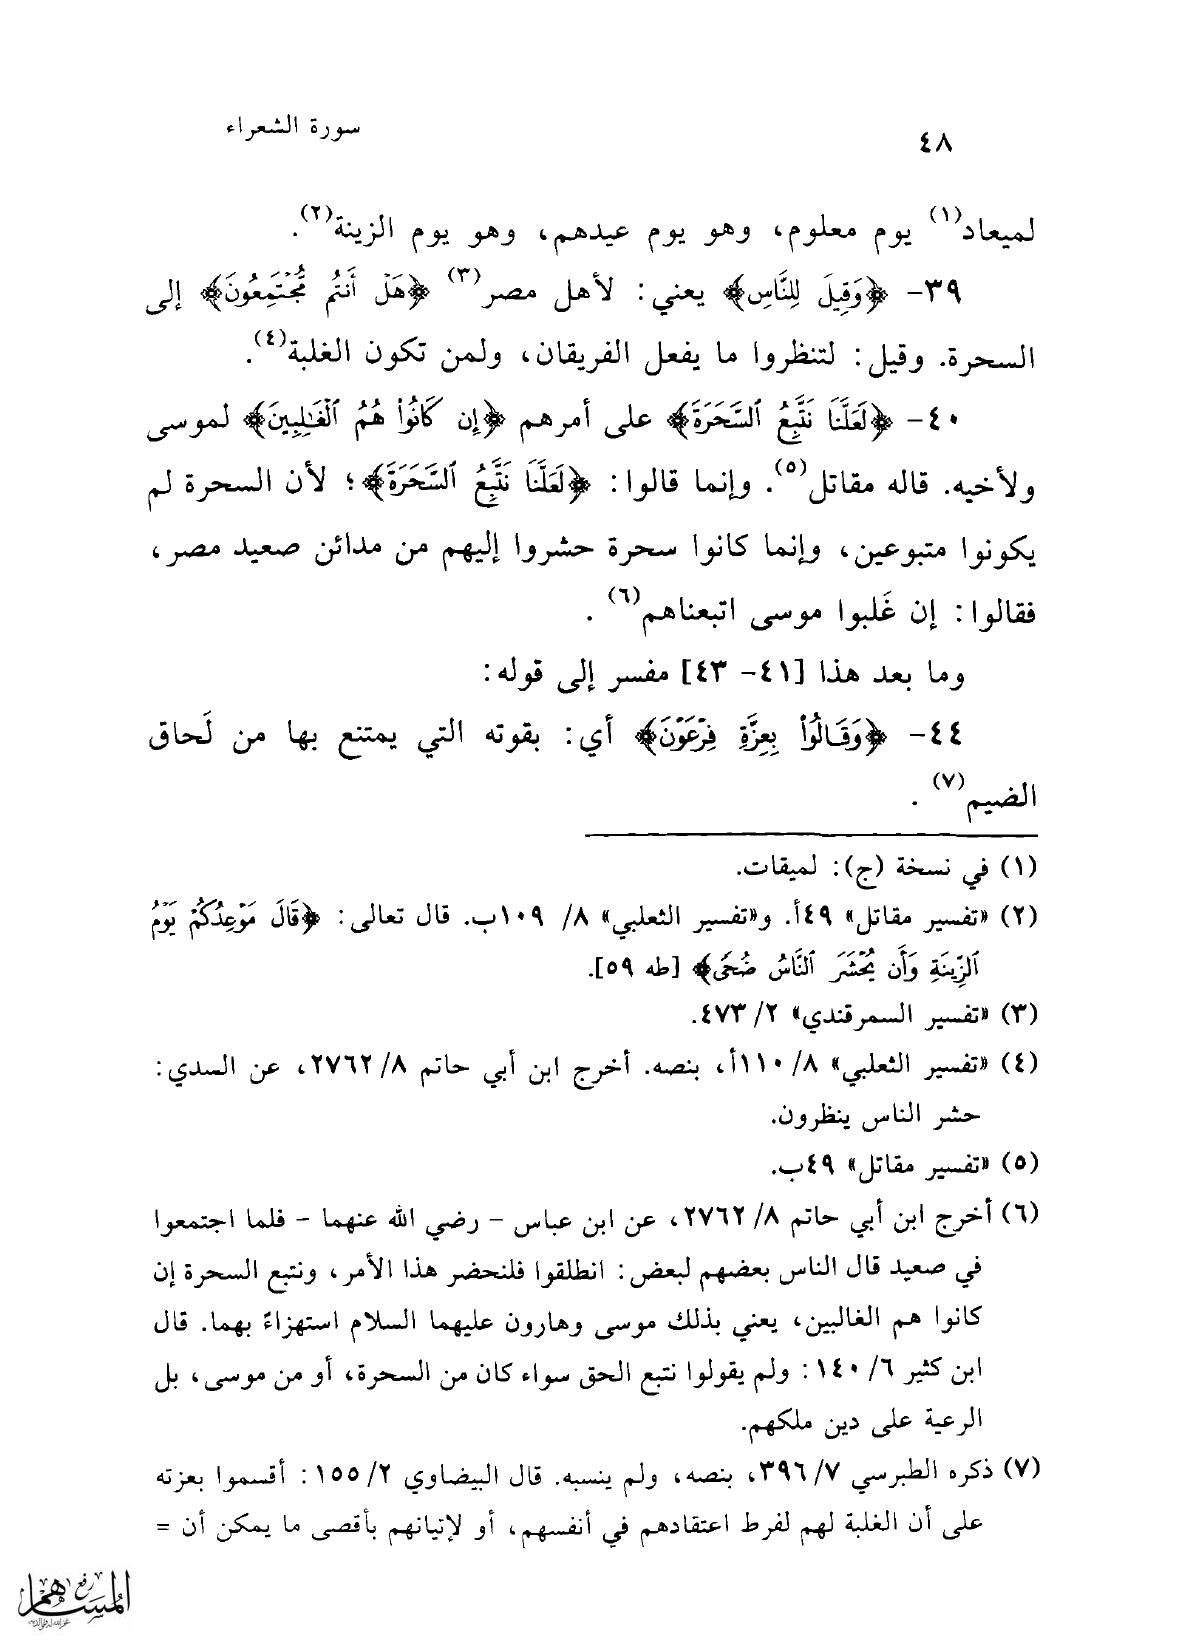 ٤٨
سورة الشعراء
لميعاد(١) يوم معلوم، وهو يوم عيدهم، وهو يوم الزينة(٢).
٣٩- ﴿وَقِيلَ لِلنَّاسِ﴾ يعني: لأهل مصر(٣) ﴿هَلْ أَنتُم مُّجْتَمِعُونَ﴾ إلى
السحرة. وقيل: لتنظروا ما يفعل الفريقان، ولمن تكون الغلبة(٤).
٤٠- ﴿لَعَلَّنَا نَتَّبِعُ ٱلسَّحَرَةَ﴾ على أمرهم ﴿إِن كَانُوا۟ هُمُ ٱلْغَـٰلِبِينَ﴾ لموسى
ولأخيه. قاله مقاتل(٥). وإنما قالوا: ﴿لَعَلَّنَا نَتَّبِعُ ٱلسَّحَرَةَ﴾؛ لأن السحرة لم
يكونوا متبوعين، وإنما كانوا سحرة حشروا إليهم من مدائن صعيد مصر،
فقالوا: إن غَلبوا موسى اتبعناهم(٦).
وما بعد هذا [٤١- ٤٣] مفسر إلى قوله:
٤٤- ﴿وَقَالُوا۟ بِعِزَّةِ فِرْعَوْنَ﴾ أي: بقوته التي يمتنع بها من لَحاق
الضيم(٧).
(١) في نسخة (ج): لميقات.
(٢) «تفسير مقاتل» ٤٩أ. و«تفسير الثعلبي» ٨/ ١٠٩ب. قال تعالى: ﴿قَالَ مَوْعِدُكُمْ يَوْمُ
ٱلزِّينَةِ وَأَن يُحْشَرَ ٱلنَّاسُ ضُحًى﴾ [طه ٥٩].
(٣) «تفسير السمرقندي» ٢/ ٤٧٣.
(٤) «تفسير الثعلبي» ٨/ ١١٠أ، بنصه. أخرج ابن أبي حاتم ٨/ ٢٧٦٢، عن السدي:
حشر الناس ينظرون.
(٥) «تفسير مقاتل» ٤٩ب.
(٦) أخرج ابن أبي حاتم ٨/ ٢٧٦٢، عن ابن عباس - رضي الله عنهما - فلما اجتمعوا
في صعيد قال الناس بعضهم لبعض: انطلقوا فلنحضر هذا الأمر، ونتبع السحرة إن
كانوا هم الغالبين، يعني بذلك موسى وهارون عليهما السلام استهزاءً بهما. قال
ابن كثير ٦/ ١٤٠: ولم يقولوا نتبع الحق سواء كان من السحرة، أو من موسى، بل
الرعية على دين ملكهم.
(٧) ذكره الطبرسي ٧/ ٣٩٦، بنصه، ولم ينسبه. قال البيضاوي ٢/ ١٥٥: أقسموا بعزته
على أن الغلبة لهم لفرط اعتقادهم في أنفسهم، أو لإتيانهم بأقصى ما يمكن أن =